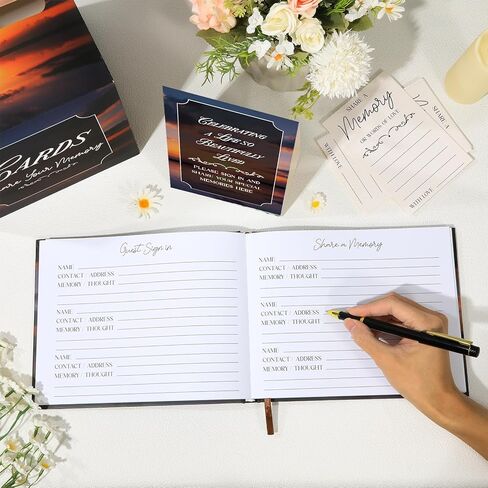 CARDS
Share Your Memory
CELEBRATING
A LIFE SO
BEAUTIFULLY
LIVED
PLEASE SIGN IN AND
SHARE YOUR SPECIAL
MEMORIES HERE
SHARE A
Memory
OR WORDS OF LOVE
WITH LOVE
WITH LOVE
Guest Sign in
NAME
CONTACT / ADDRESS
MEMORY / THOUGHT
NAME
CONTACT / ADDRESS
MEMORY / THOUGHT
NAME
CONTACT / ADDRESS
MEMORY / THOUGHT
Share a Memory
NAME
CONTACT / ADDRESS
MEMORY / THOUGHT
NAME
CONTACT / ADDRESS
MEMORY / THOUGHT
NAME
CONTACT / ADDRESS
MEMORY / THOUGHT